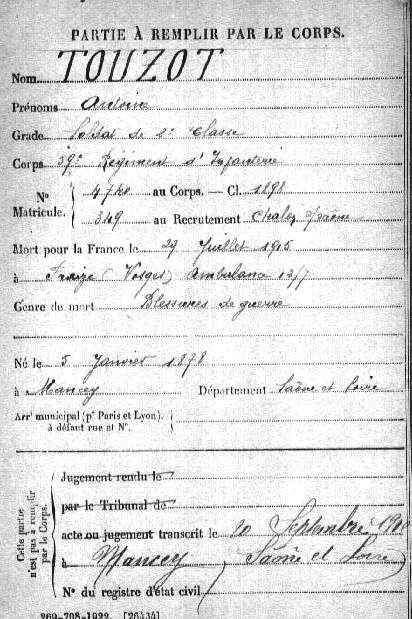 PARTIE À REMPLIR PAR LE CORPS.
Nom TOUZOT
Prénoms Antoine
Grade Soldat de 2e Classe
Corps 59e Régiment d'Infanterie
No Matricule. 4740 au Corps. — Cl. 1898
349 au Recrutement Chalon s/Saône
Mort pour la France le 29 Juillet 1915
à Fraize (Vosges) Ambulance 13/7
Genre de mort Blessures de guerre
Né le 5 Janvier 1878
à Mancey Département Saône et Loire
Arrt municipal (pr Paris et Lyon),
à défaut rue et No.
Cette partie n'est pas à remplir par le Corps.
Jugement rendu le
par le Tribunal de
acte ou jugement transcrit le 20 Septembre
à Mancey Saône et Loire
No du registre d'état civil
269-708-1922. [26434]